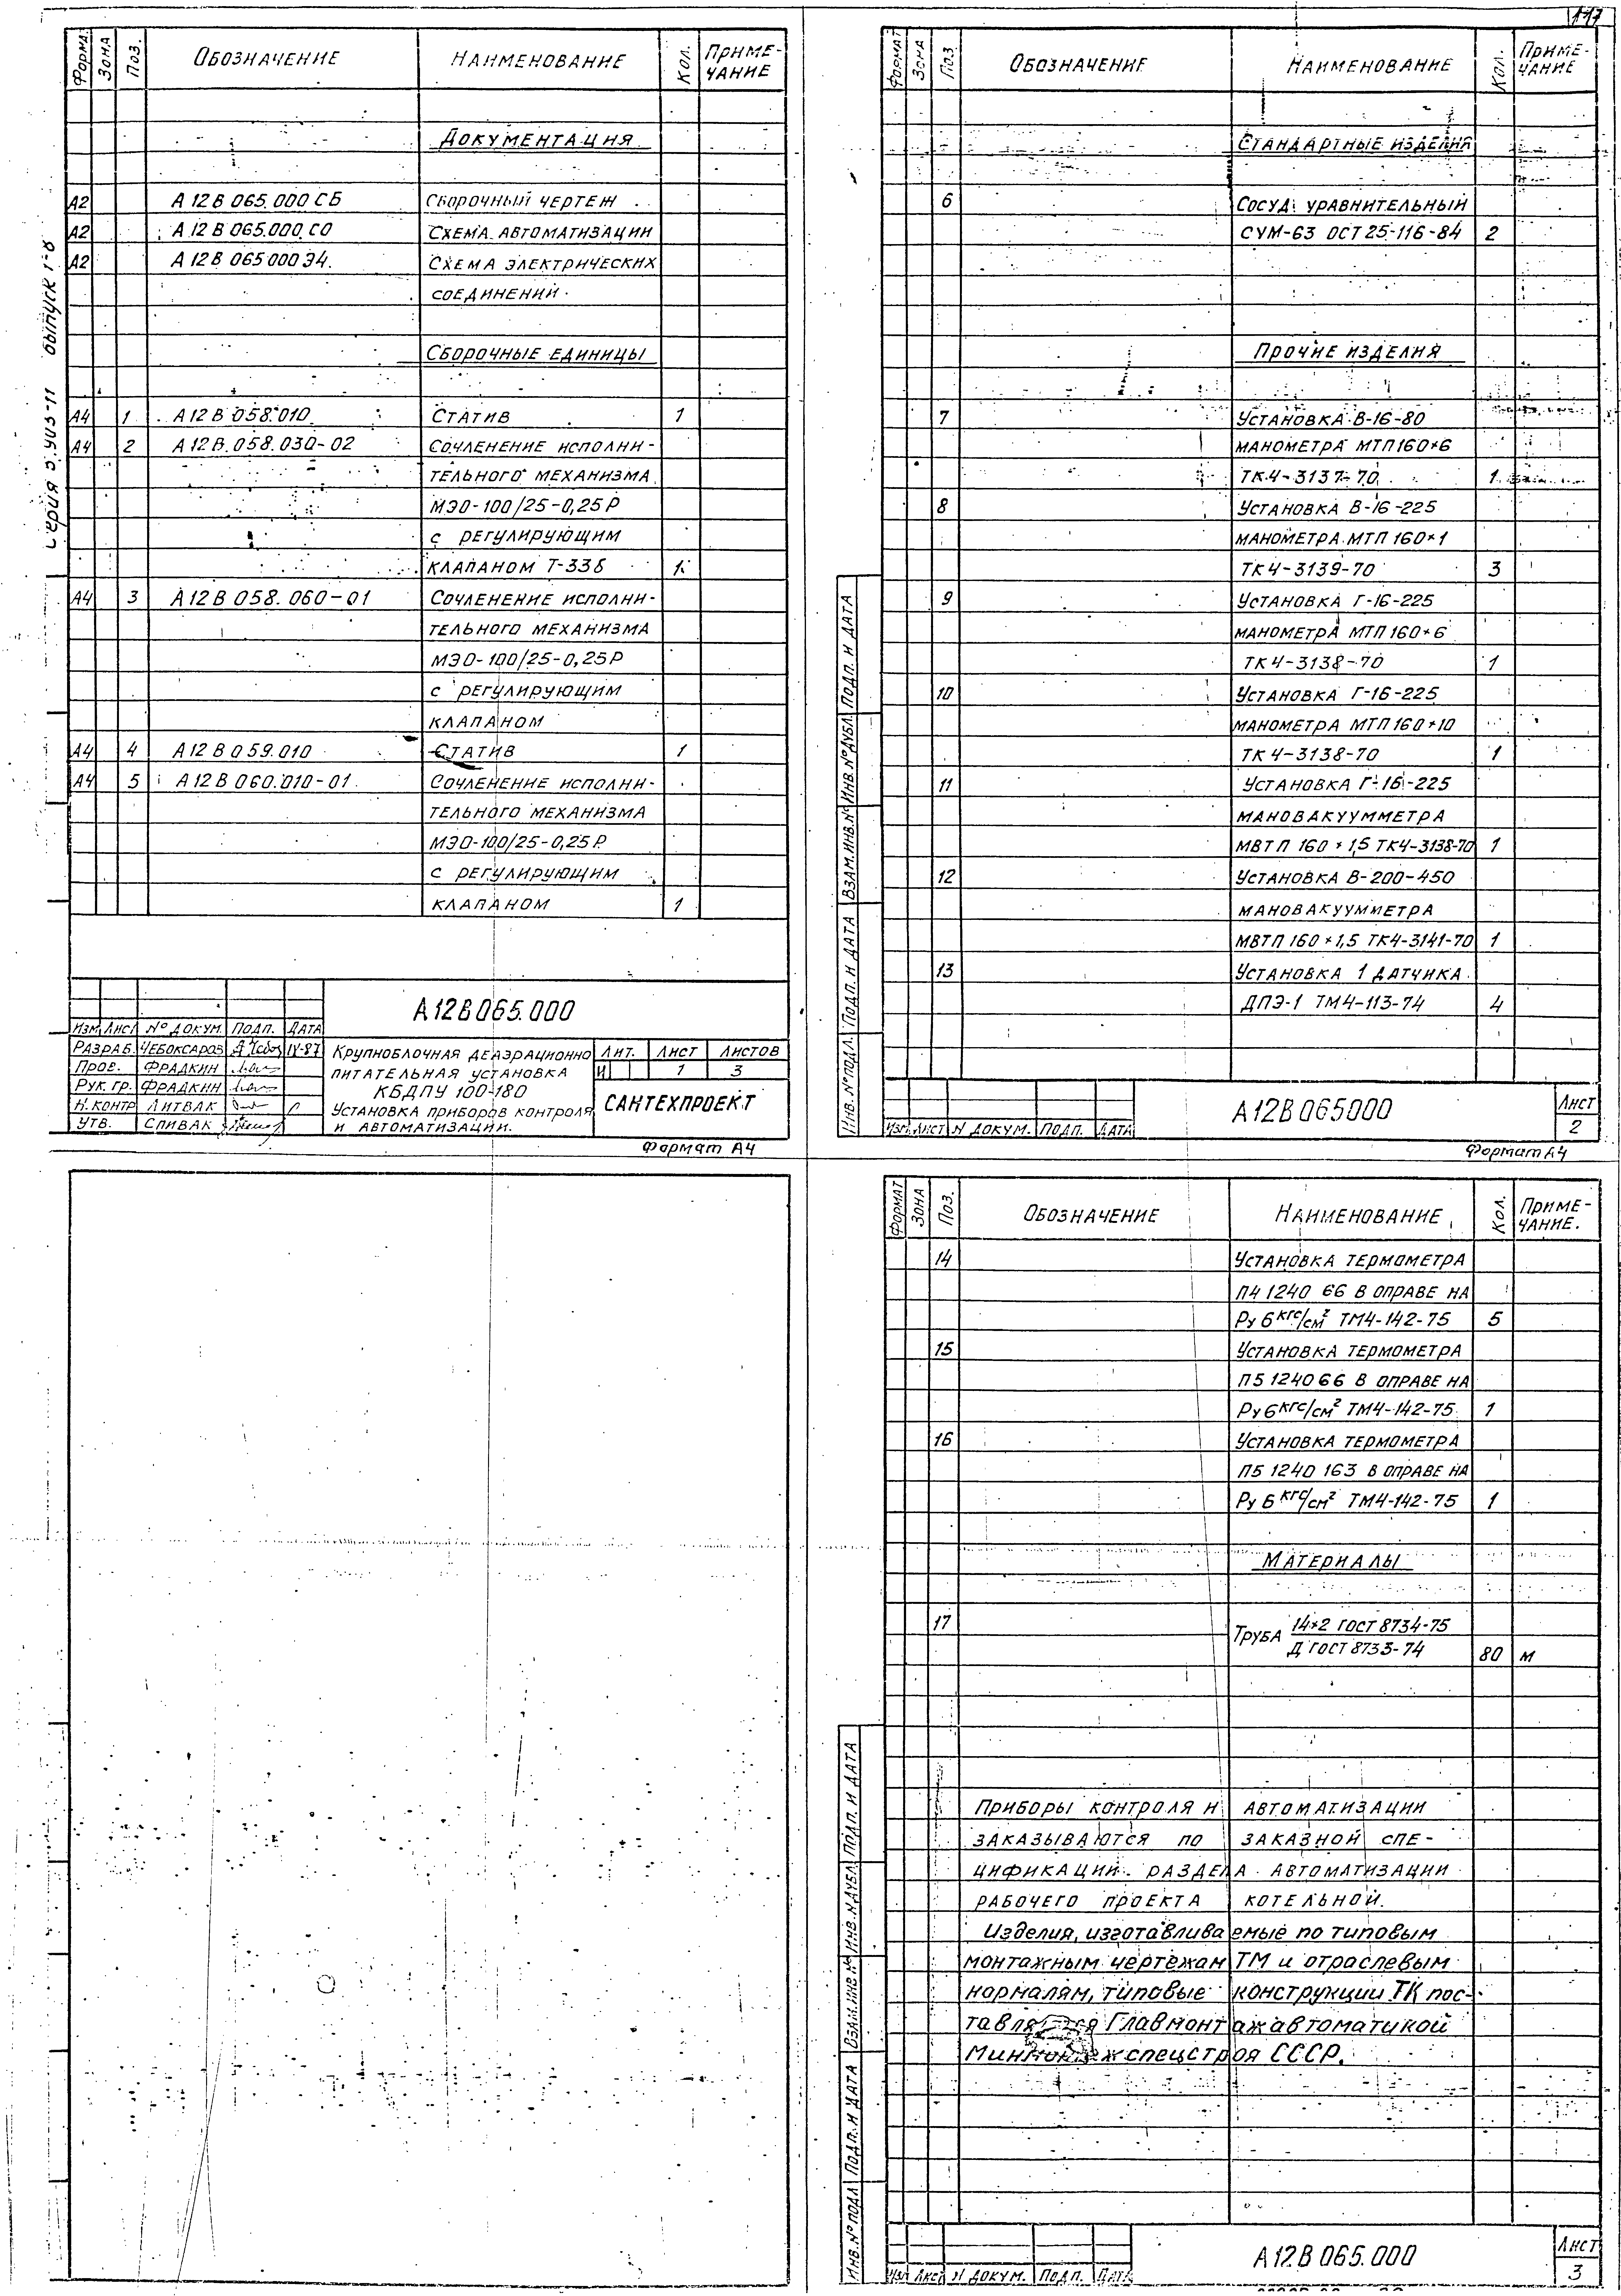 117
Серия 5.903-11 выпуск 1-8
Формат Зона Поз. Обозначение Наименование Кол. Примечание
Документация
А2 А12В 065.000 СБ Сборочный чертеж
А2 А12В 065.000.СО Схема автоматизации
А2 А12В 065000 Э4. Схема электрических
соединений.
Сборочные единицы
А4 1 А12В 058.010 Статив 1
А4 2 А12В.058.030-02 Сочленение исполни-
тельного механизма
МЭО-100/25-0,25Р
с регулирующим
клапаном Т-33б 1
А4 3 А12В 058.060-01 Сочленение исполни-
тельного механизма
МЭО-100/25-0,25Р
с регулирующим
клапаном
А4 4 А12В 059.010 Статив 1
А4 5 А12В 060.010-01 Сочленение исполни-
тельного механизма
МЭО-100/25-0,25Р
с регулирующим
клапаном 1
А12В065.000
Изм Лист № докум. Подп. Дата
Разраб. Чебоксаров IV-87
Пров. Фрадкин
Рук. гр. Фрадкин
Н.контр Литвак
Утв. Спивак
Крупноблочная деаэрационно
питательная установка
КБДПУ 100-180
Установка приборов контроля
и автоматизации.
Лит. Лист Листов
И 1 3
САНТЕХПРОЕКТ
Формат А4
Формат Зона Поз. Обозначение Наименование Кол. Примечание
Стандартные изделия
6 Сосуд уравнительный
СУМ-63 ОСТ 25-116-84 2
Прочие изделия
7 Установка В-16-80
манометра МТП160×6
ТК4-3137-70 1
8 Установка В-16-225
манометра МТП 160×1
ТК4-3139-70 3
9 Установка Г-16-225
манометра МТП 160×6
ТК4-3138-70 1
10 Установка Г-16-225
манометра МТП 160×10
ТК4-3138-70 1
11 Установка Г-16-225
мановакуумметра
МВТП 160×1,5 ТК4-3138-70 1
12 Установка В-200-450
мановакуумметра
МВТП 160×1,5 ТК4-3141-70 1
13 Установка 1 датчика
ДПЭ-1 ТМ4-113-74 4
Инв.№подл. Подп. и дата Взам.инв.№ Инв.№дубл. Подп. и дата
Изм Лист N докум. Подп. Дата
А12В065000
Лист
2
Формат А4
Формат Зона Поз. Обозначение Наименование Кол. Примечание.
14 Установка термометра
П4 1240 66 в оправе на
Ру 6 кгс/см² ТМ4-142-75 5
15 Установка термометра
П5 1240 66 в оправе на
Ру 6 кгс/см² ТМ4-142-75 1
16 Установка термометра
П5 1240 163 в оправе на
Ру 6 кгс/см² ТМ4-142-75 1
Материалы
17 Труба 14×2 ГОСТ 8734-75
Д ГОСТ 8733-74 80 м
Приборы контроля и автоматизации
заказываются по заказной спе-
цификации раздела автоматизации
рабочего проекта котельной.
Изделия, изготавливаемые по типовым
монтажным чертежам ТМ и отраслевым
нормалям, типовые конструкции ТК пос-
тавляются Главмонтажавтоматикой
Минмонтажспецстроя СССР.
Инв.№подл Подп. и дата Взам.инв № Инв.№дубл Подп. и дата
Изм Лист N докум. Подп. Дата
А12В065.000
Лист
3